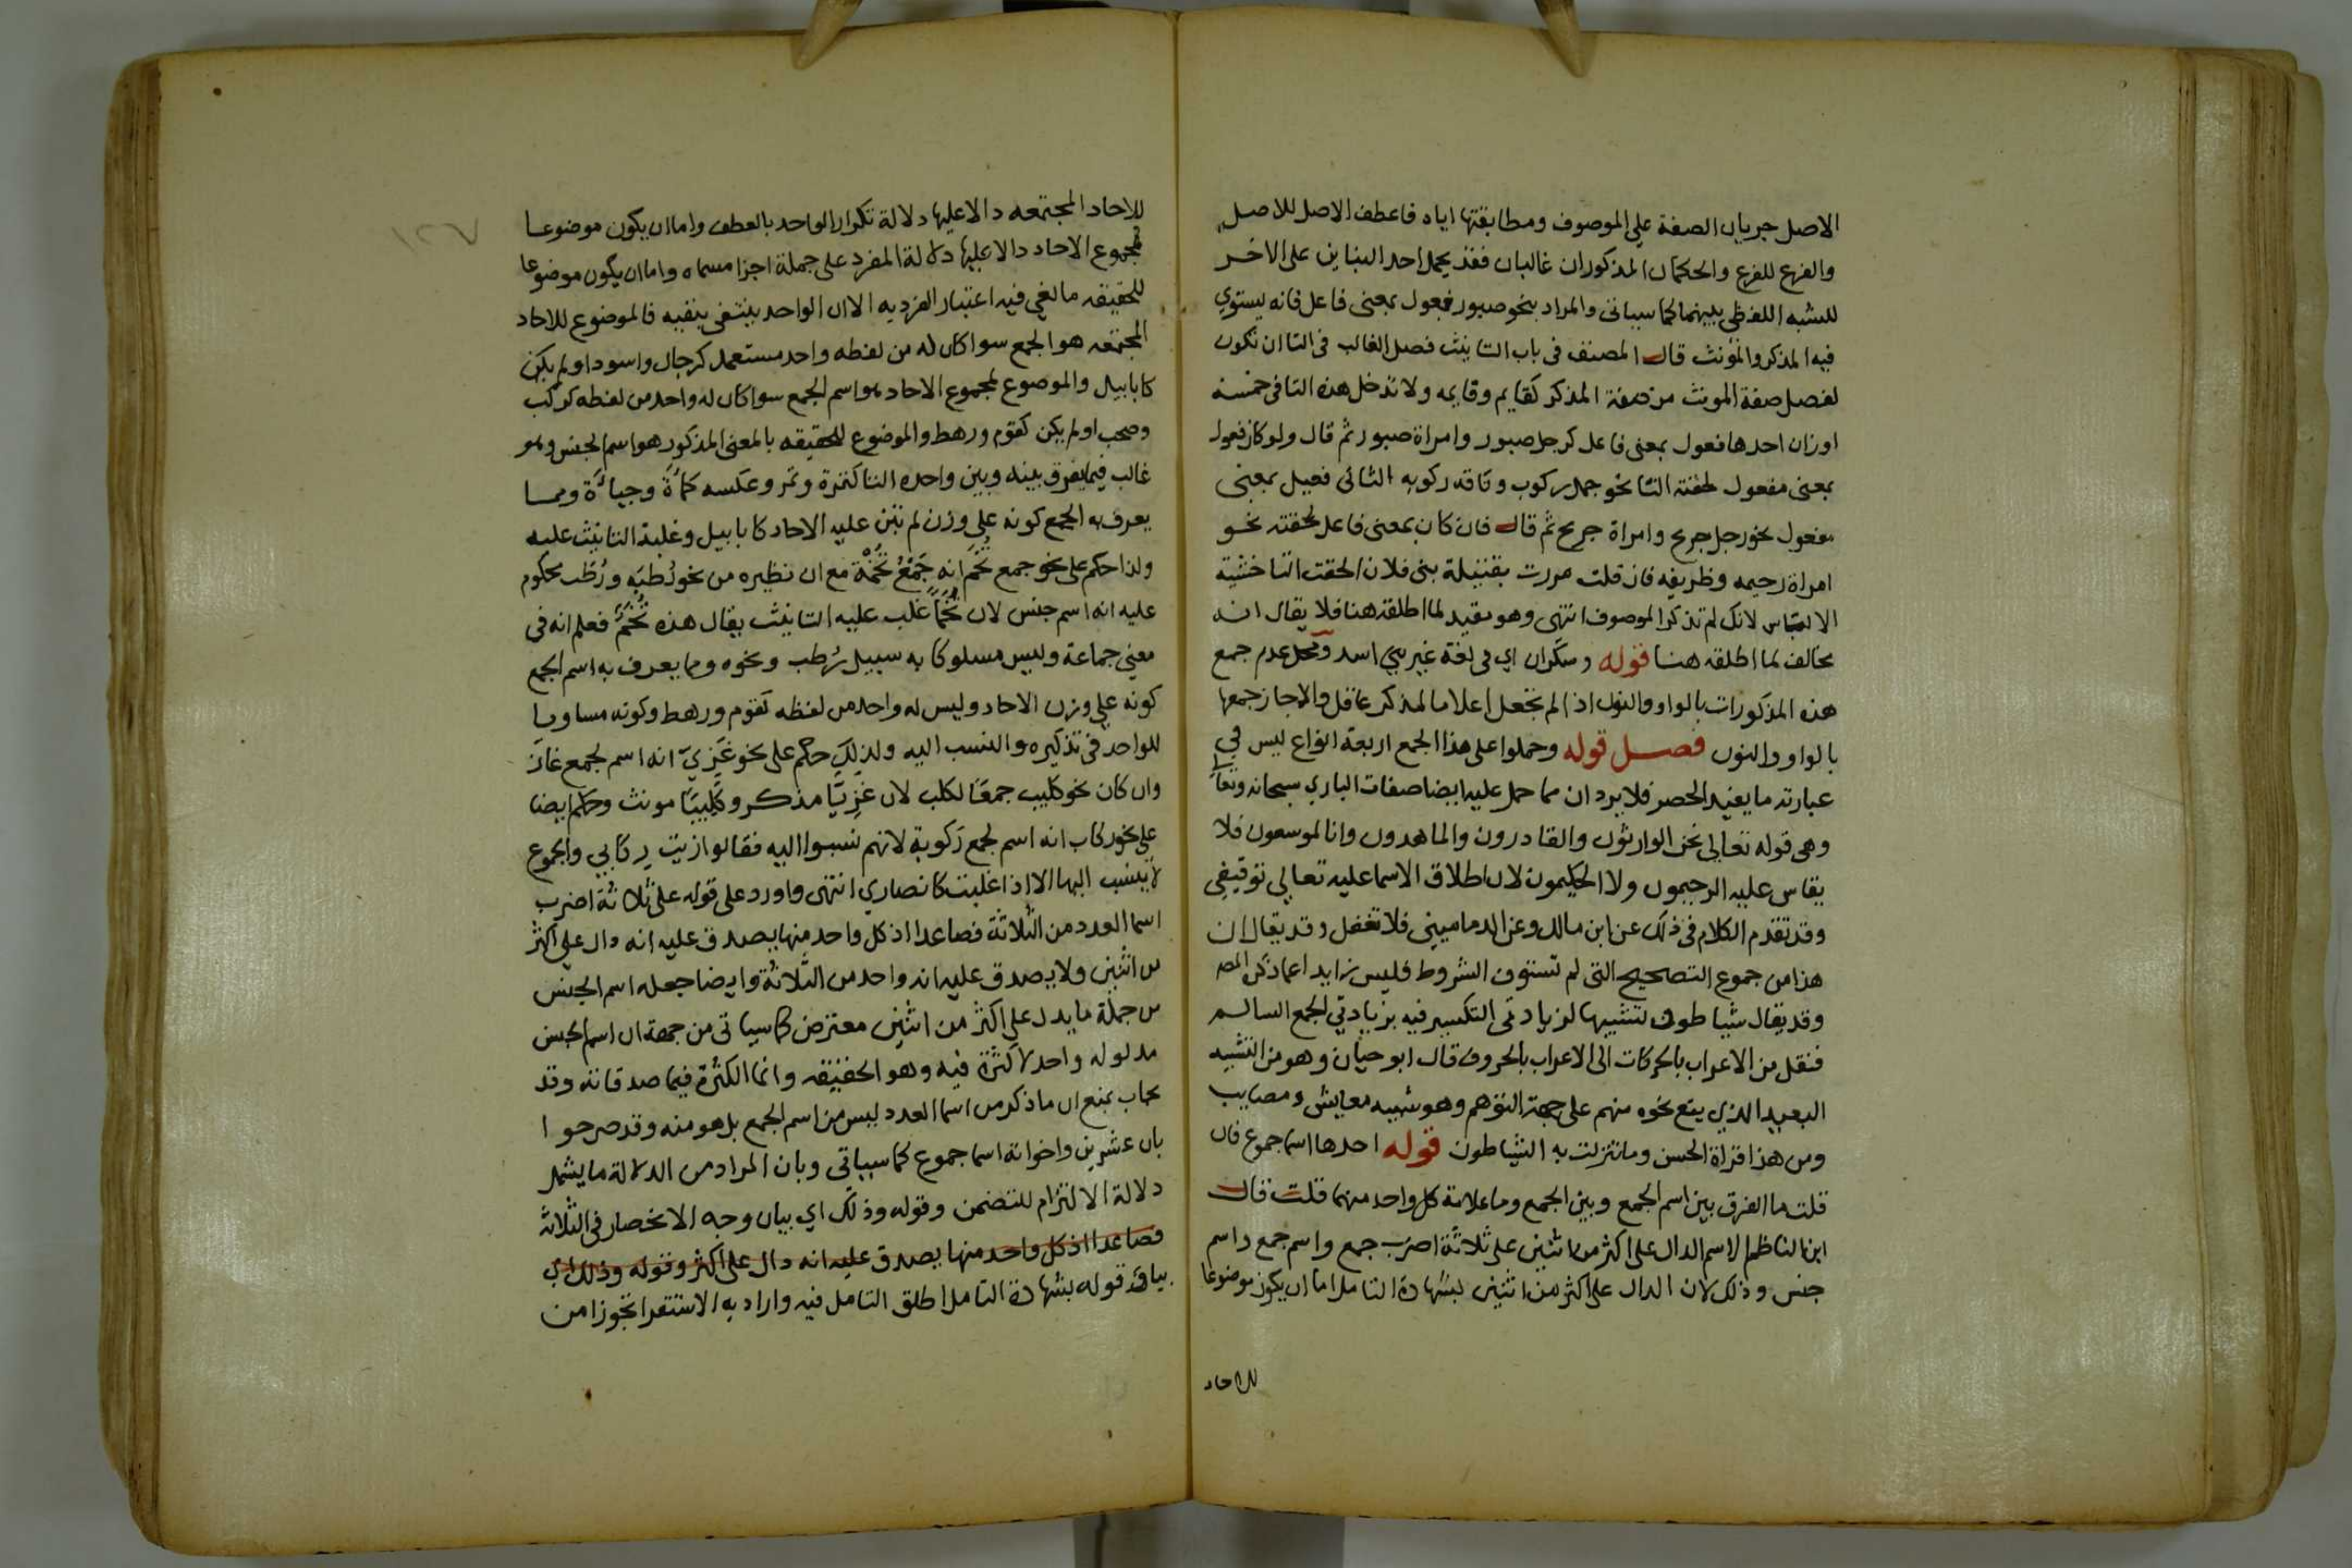 الاصل جريان الصفة علي الموصوف ومطابقتها اياه فاعطف الاصل للاصل
والفرع للفرع والحكمان المذكوران غالبان فقد يحمل احد البناين على الاخر
للشبه اللفظي بينهما كما سياتي والمراد بنحو صبور فعول بمعنى فاعل فانه يستوي
فيه المذكر والمؤنث قال المصنف في باب التانيث فصل الغالب في التا ان تكون
لفصل صفة المونث من صفة المذكر كقايم وقايمه ولا تدخل هذه التا في خمسة
اوزان احدها فعول بمعنى فاعل كرجل صبور وامراة صبور ثم قال ولو كان فعول
بمعنى مفعول لحقته التا نحو جمل ركوب وناقه ركوبه الثاني فعيل بمعنى
مفعول نحو رجل جريح وامراة جريح ثم قال فان كان بمعنى فاعل لحقته نحو
امراة رحيمه وظريفه فان قلت مررت بقتيلة بني فلان الحقت التا خشية
الالتباس لانك لم تذكر الموصوف انتهى وهو مقيد لما اطلقه هنا فلا يقال انه
مخالف لما اطلقه هنا قوله وسكران اي في لغة غير بني اسد ومحل عدم جمع
هذه المذكورات بالواو والنون اذا لم تجعل اعلاما لمذكر عاقل والا جاز جمعها
بالواو والنون فصل قوله وحملوا على هذا الجمع اربعة انواع ليس في
عبارته ما يفيد الحصر فلا يرد ان مما حمل عليه ايضا صفات الباري سبحانه وتعا
وهي قوله تعالى نحن الوارثون والقادرون والماهدون وانا لموسعون فلا
يقاس عليه الرحيمون ولا الحكيمون لان اطلاق الاسما عليه تعالي توقيفي
وقد تقدم الكلام في ذلك عن ابن مالك وعن الدماميني فلا تغفل وقد يقال ان
هذا من جموع التصحيح التي لم تستوف الشروط فليس زايد اعما ذكره المصـ
وقد يقال شياطون تشبيها لزيادتي التكسير فيه بزيادتي الجمع السالم
فنقل من الاعراب بالحركات الى الاعراب بالحروف قال ابو حيان وهو من التشبيه
البعيد الذي يقع نحوه منهم على جهة التوهم وهو شبيه معايش ومصايب
ومن هذا قراة الحسن وما تنزلت به الشياطون قوله احدها اسما جموع فان
قلت ما الفرق بين اسم الجمع وبين الجمع وما علامة كل واحد منهما قلت قال
ابن الناظم الاسم الدال على اكثر من اثنين على ثلاثة اضرب جمع واسم جمع واسم
جنس وذلك لان الدال على اكثر من اثنين بشهادة التامل اما ان يكون موضوعا
للاحاد
١٢٧
للاحاد المجتمعه دالا عليها دلالة تكرار الواحد بالعطف واما ان يكون موضوعا
لمجموع الاحاد دالا عليها دلالة المفرد على جملة اجزا مسماه واما ان يكون موضوعا
للحقيقه مالغي فيه اعتبار الفرديه الا ان الواحد ينتفي بنفيه فالموضوع للاحاد
المجتمعه هو الجمع سوا كان له من لفظه واحد مستعمل كرجال واسود او لم يكن
كابابيل والموضوع لمجموع الاحاد هو اسم الجمع سوا كان له واحد من لفظه كركب
وصحب او لم يكن كقوم ورهط والموضوع للحقيقه بالمعنى المذكور هو اسم الجنس وهو
غالب فيما يفرق بينه وبين واحده التا كتمرة وتمر وعكسه كمأة وجبأة ومما
يعرف به الجمع كونه على وزن لم تبن عليه الاحاد كابابيل وغلبة التانيث عليه
ولذا حكم على نحو جمع تُخَم انه جَمْعُ تُخَمَة مع ان نظيره من نحو رُطبَه ورُطَب محكوم
عليه انه اسم جنس لان تُخَماً غلب عليه التانيث يقال هذه تُخَمٌ فعلم انه في
معنى جماعة وليس مسلوكا به سبيل رُطب ونحوه ومما يعرف به اسم الجمع
كونه على وزن الاحاد وليس له واحد من لفظه كقوم ورهط وكونه مساويا
للواحد في تذكيره والنسب اليه ولذلك حكم على نحو غَزِيّ انه اسم لجمع غاز
وان كان نحو كليب جمعًا لكلب لان غَزِيّا مذكر وكليبًا مونث وحكم ايضا
على نحو ركاب انه اسم لجمع ركوبة لانهم نسبوا اليه فقالوا زيت رِكابي والجموع
لا ينسب اليها الا اذا غلبت كانصاري انتهى واورد على قوله على ثلاثة اضرب
اسما العدد من الثلاثة فصاعدا اذ كل واحد منها يصدق عليه انه دال علي اكثر
من اثنين ولا يصدق عليه انه واحد من الثلاثة وايضا جعله اسم الجنس
من جملة ما يدل على اكثر من اثنين معترض كما سياتي من جهة ان اسم الجنس
مدلوله واحد لا كثرة فيه وهو الحقيقه وانما الكثرة فيما صدقاته وقد
يجاب بمنع ان ما ذكر من اسما العدد ليس من اسم الجمع بل هو منه وقد صرحوا
بان عشرين واخواته اسما جموع كما سياتي وبان المراد من الدلالة ما يشمل
دلالة الالتزام للتضمن وقوله وذلك اي بيان وجه الانحصار في الثلاثة
فصاعدا اذ كل واحد منها يصدق عليه انه دال على اكثر وقوله وذلك اي
بيانه قوله بشهادة التامل اطلق التامل فيه واراد به الاستقرا تجوزا من